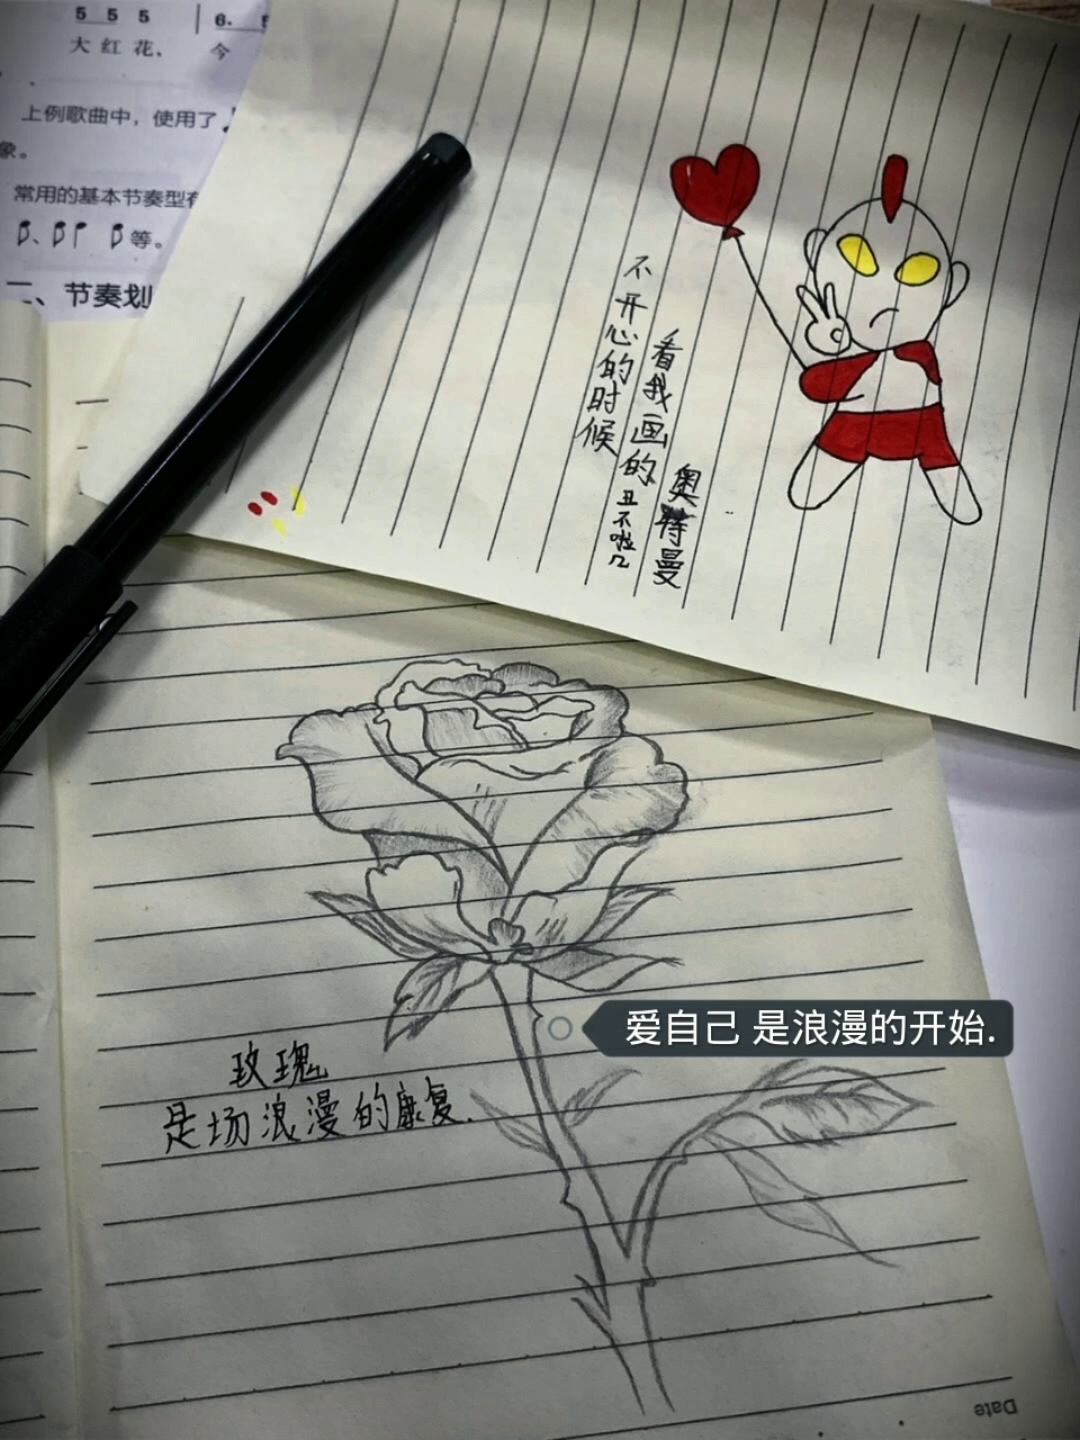 5 5 5 | 6.
大 红 花， 今
上例歌曲中，使用了
象。
常用的基本节奏型有
等。
二、节奏划
不开心的时候
看我画的
奥特曼
丑不啦几
爱自己 是浪漫的开始.
玫瑰
是场浪漫的康复.
Date